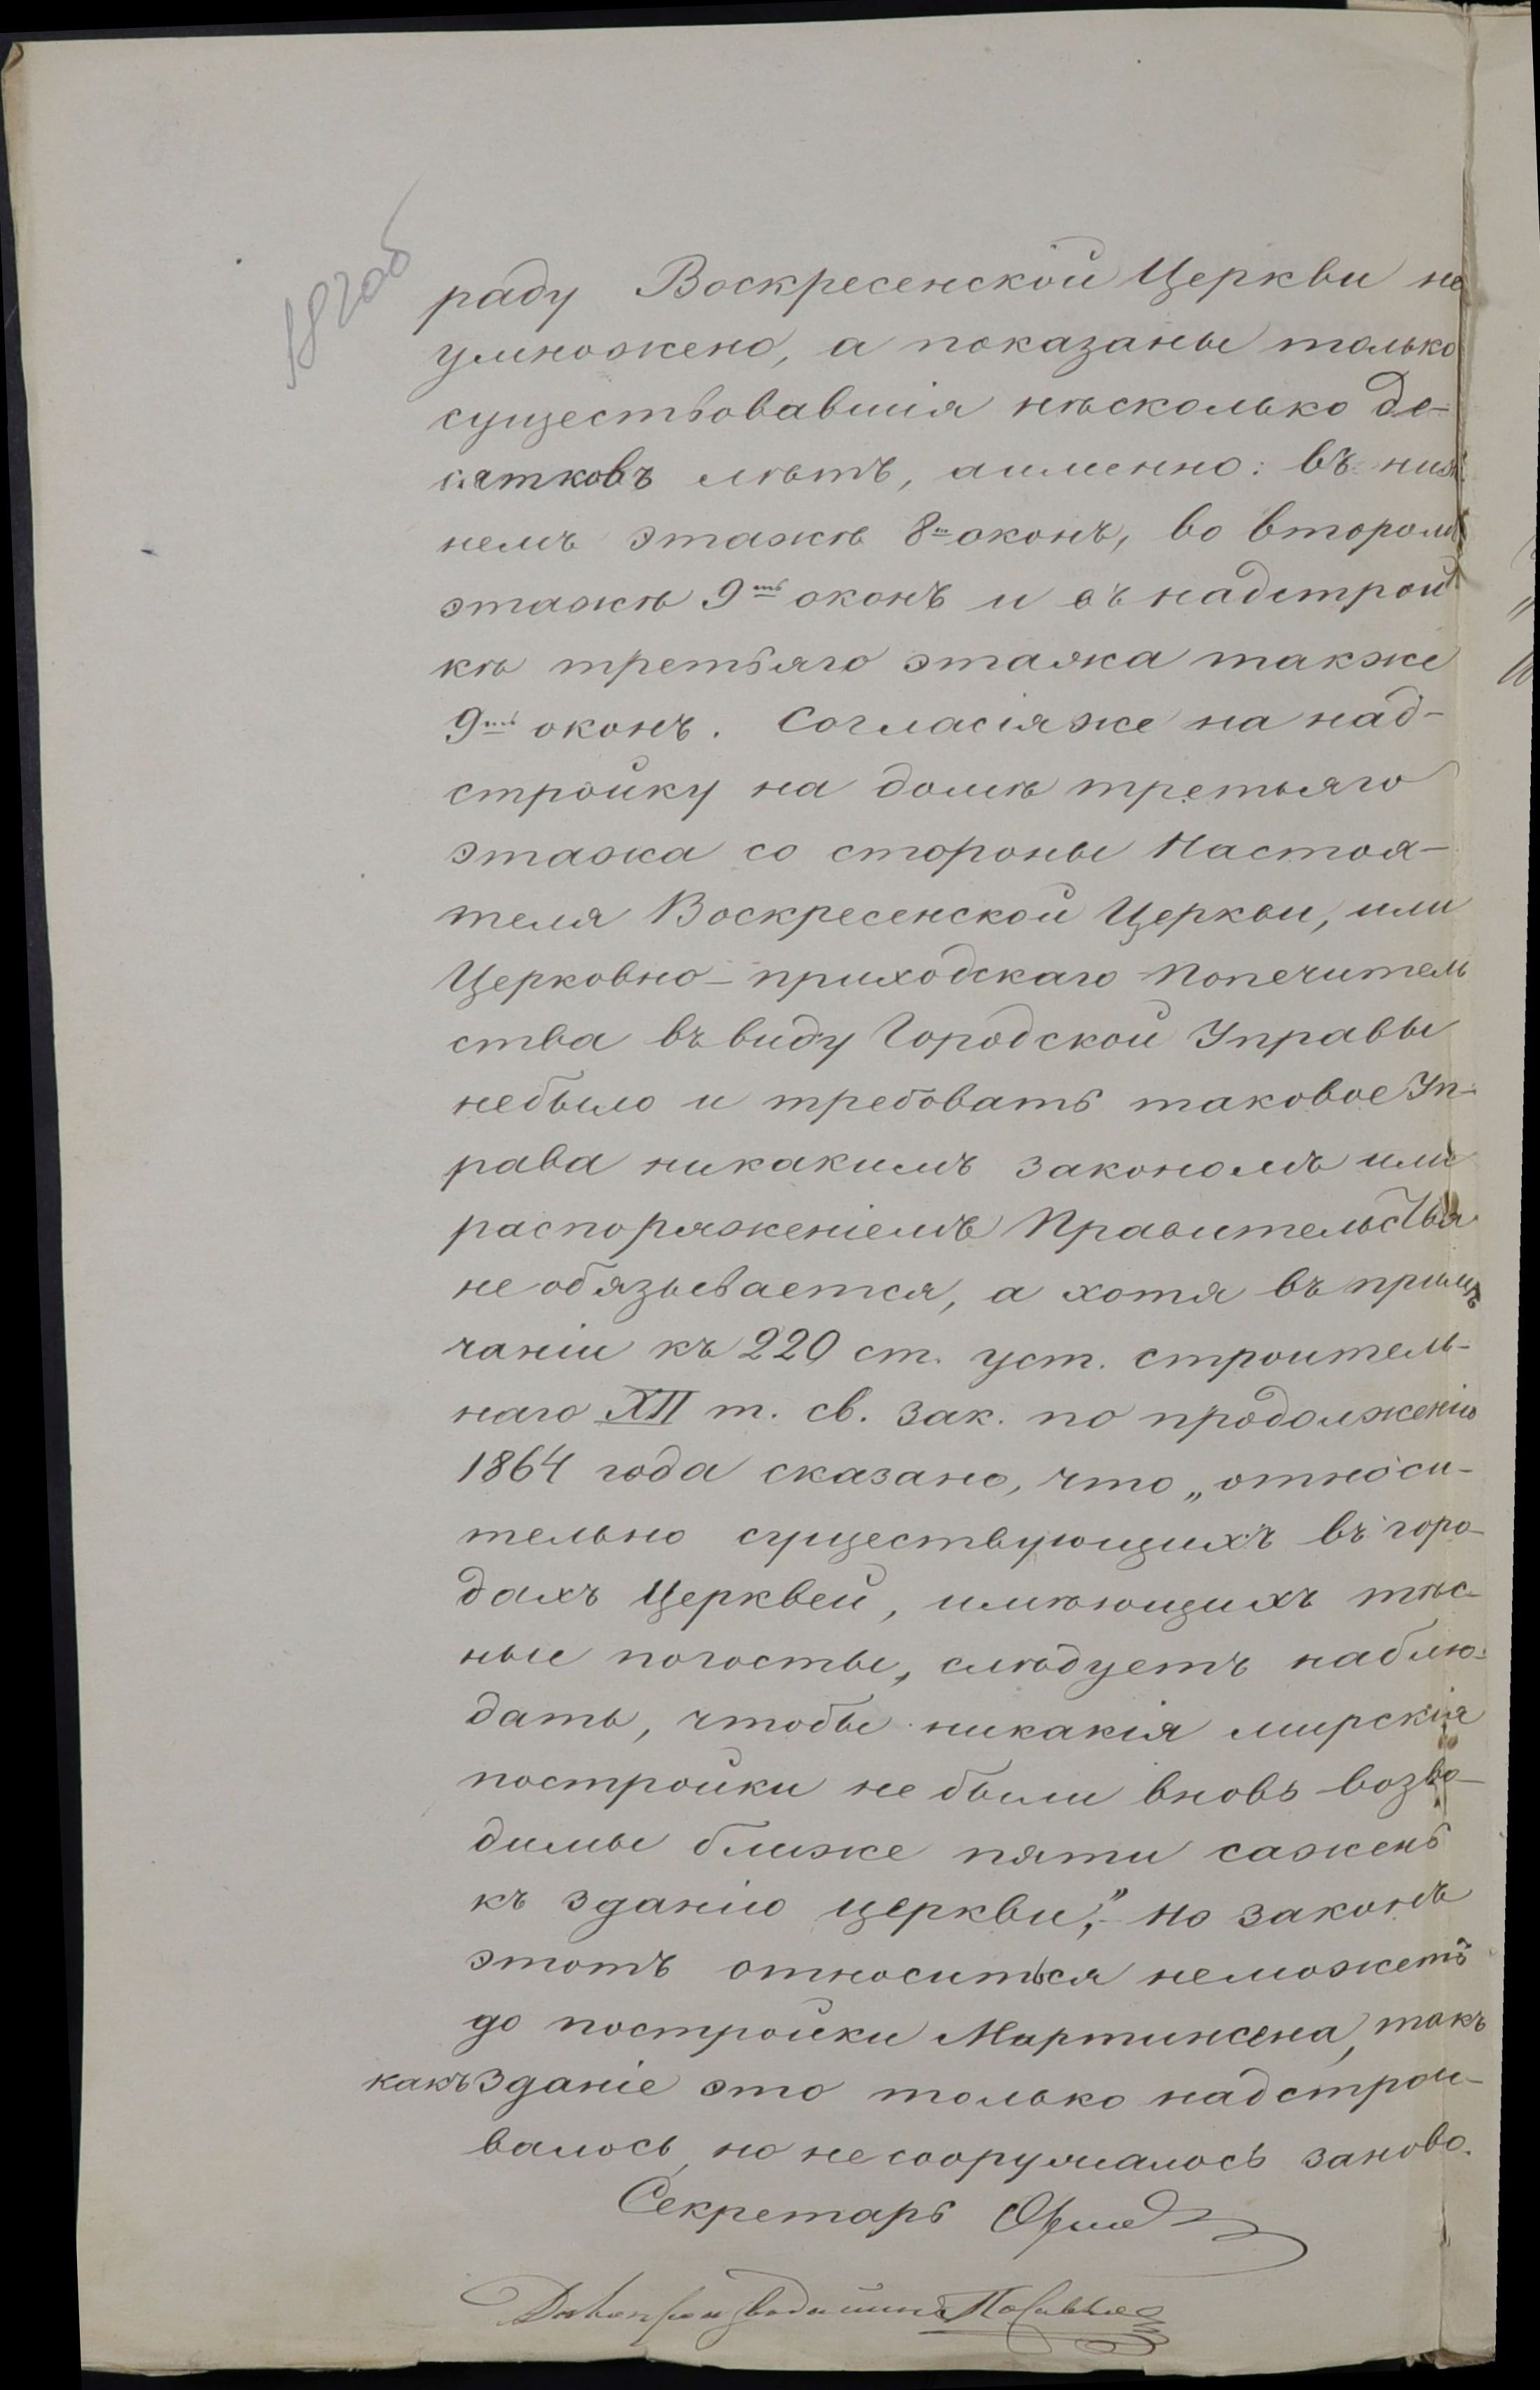 182 об
раду Воскресенской Церкви не
умножено, а показаны только
существовавшія нѣсколько де-
сятковъ лѣтъ, аименно: въ ниж
немъ этажѣ 8ⁿ оконъ, во второмъ
этажѣ 9ᵗᵇ оконъ и въ надстрой
кѣ третьяго этажа также
9ᵗᵇ оконъ. Согласія же на над-
стройку на домѣ третьяго
этажа со стороны Настоя-
теля Воскресенской Церкви, или
Церковно-приходскаго Попечитель
ства въ виду Городской Управы
небыло и требовать таковое Уп-
рава никакимъ закономъ или
распоряженіемъ Правительства
не обязывается, а хотя въ примѣ
чаніи къ 220 ст. уст. строитель-
наго XII т. св. зак. по продолженію
1864 года сказано, что „относи-
тельно существующихъ въ горо-
дахъ Церквей, имѣющихъ тѣс-
ные погосты, слѣдуетъ наблю-
дать, чтобы никакія мирскія
постройки не были вновь возво-
димы ближе пяти сажень
къ зданію церкви;"- но законъ
этотъ относиться неможетъ
до постройки Мартинсена, такъ
какъ зданіе это только надстрои-
валось, но не сооружалось заново.
Секретарь
Дѣлопроизводитель